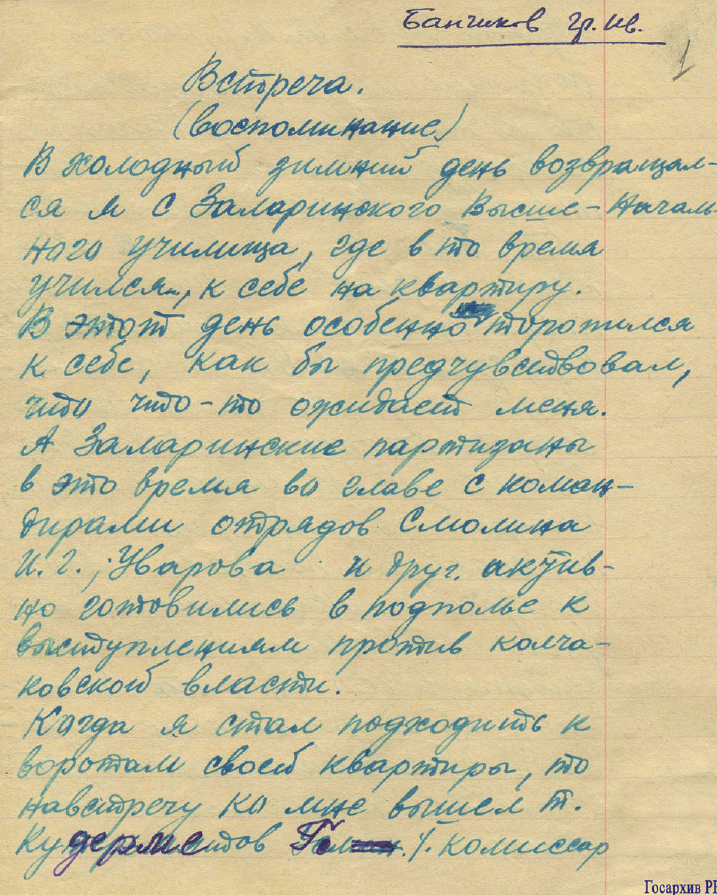 Банчиков Гр. Ив.
1
Встреча.
(воспоминание)
В холодный зимний день возвращал-
ся я с Заларинского Высше-началь-
ного училища, где в то время
учился, к себе на квартиру.
В этот день особенно торопился
к себе, как бы предчувствовал,
что что-то ожидает меня.
А Заларинские партизаны
в это время во главе с коман-
дирами отрядов Смолина
И.Г., Уварова и друг. актив-
но готовились в подполье к
выступлениям против колча-
ковской власти.
Когда я стал подходить к
воротам своей квартиры, то
навстречу ко мне вышел т.
комиссар
Госархив РБ